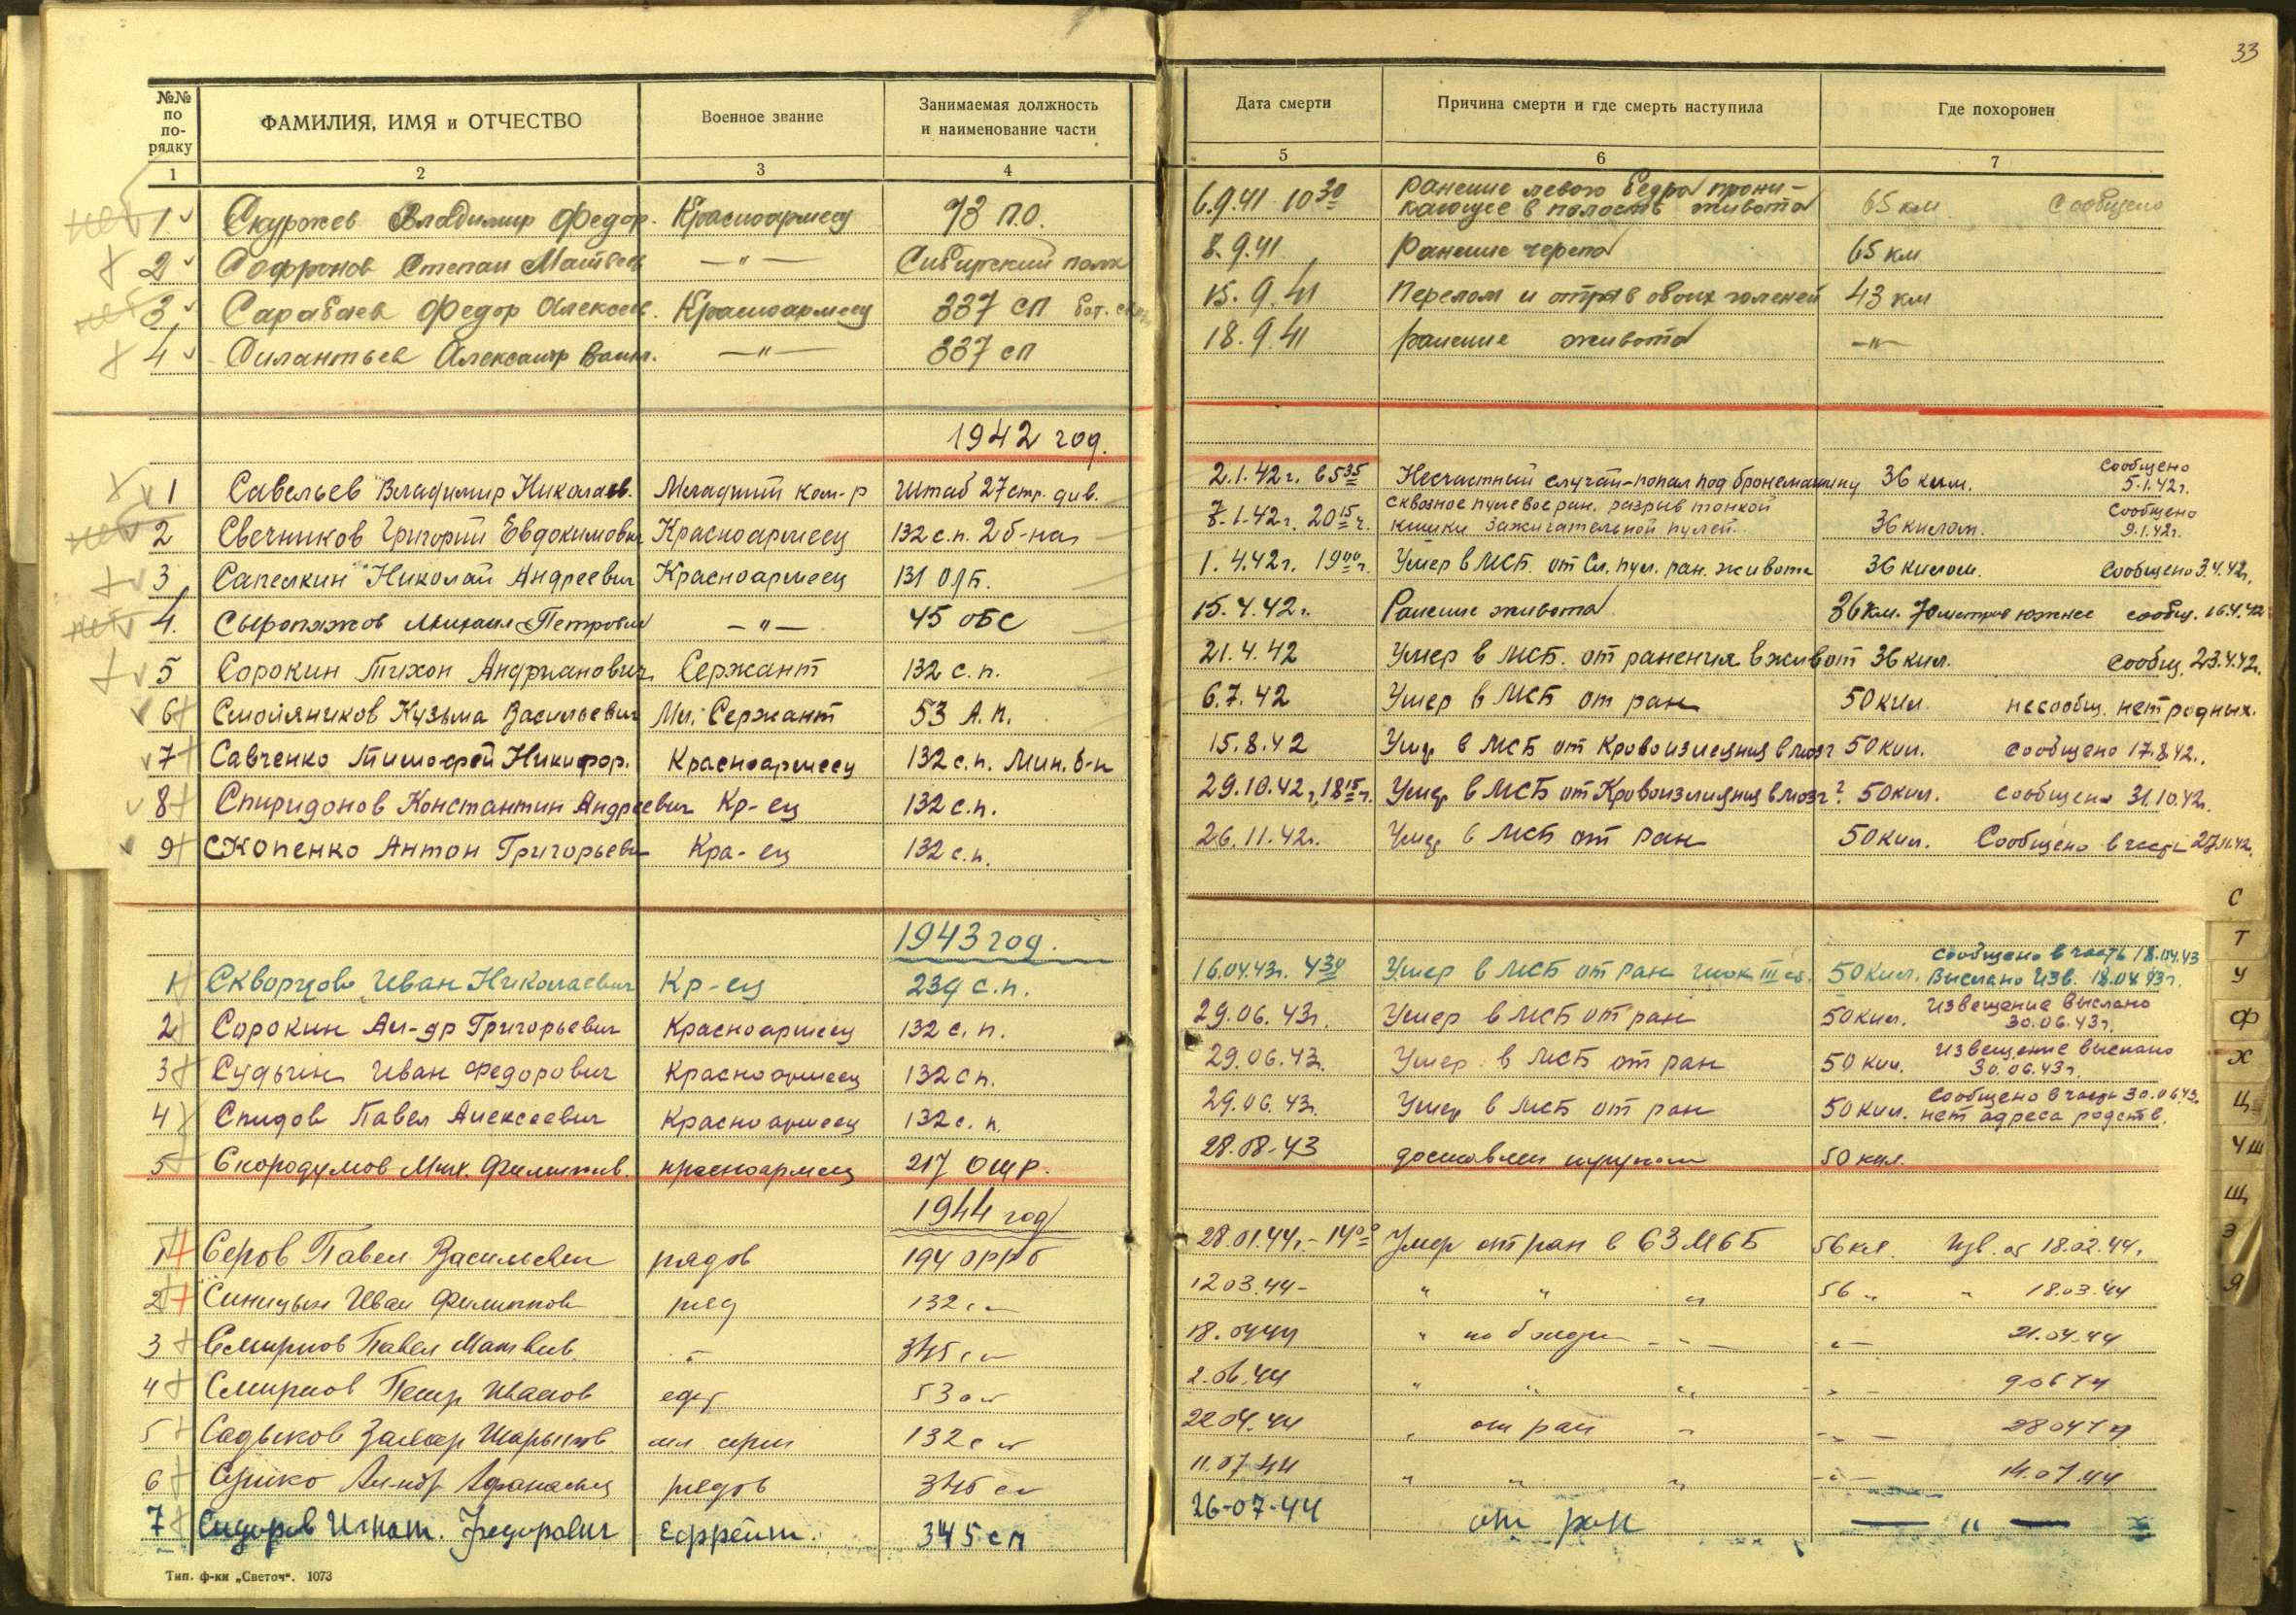 33
№№ по по- рядку
ФАМИЛИЯ, ИМЯ и ОТЧЕСТВО
Военное звание
Занимаемая должность и наименование части
Дата смерти
Причина смерти и где смерть наступила
Где похоронен
1 2 3 4 5 6 7
нет 1. Скуржев Владимир Федор. Красноармеец 73 п.о. 6.9.41 10 30 Ранение левого бедра прони-
кающее в полость живота 65 км Сообщено
2 Софронов Степан Матвеев —"— Сибирский полк 8.9.41 Ранение черепа 65 км
нет 3. Сарабаев Федор Алексеев. Красноармеец 337 сп бат. 15.9.41 Перелом и отрыв обоих голеней 43 км
4 Силантьев Александр Васил. —"— 337 сп 18.9.41 Ранение живота —"—
1942 год.
1 Савельев Владимир Николаев. Младший ком-р Штаб 27 стр. див. 2.1.42г. в 5 35 Несчастный случай-попал под бронемашину 36 килм. Сообщено
5.1.42г.
нет 2 Свечников Григорий Евдокимович Красноармеец 132 с.п. 2 б-на 7.1.42г. 20 15 ч. Сквозное пулевое ран. разрыв тонкой
кишки зажигательной пулей. 36 килом. Сообщено
9.1.42г.
3 Сапелкин Николай Андреевич Красноармеец 131 ОЛБ. 1.4.42г. 19 00 ч. Умер в МСБ. от Сл. пул. ран. живота 36 килом. Сообщено 3.4.42г.
нет 4. Сыропяжов Михаил Петрович —"— 45 ОБС 15.4.42г. Ранение живота 36 км. 70 метров южнее сообщ. 16.4.42
5 Сорокин Тихон Андрианович Сержант 132 с.п. 21.4.42 Умер в МСБ. от ранения в живот 36 кил. Сообщ. 23.4.42г.
6 Смольяников Кузьма Васильевич Мл. Сержант 53 А.п. 6.7.42 Умер в МСБ от ран 50 кил. несообщ. нет родных.
7 Савченко Тимофей Никифор. Красноармеец 132 с.п. Мин. б-н 15.8.42 Умер в МСБ от Кровоизлияния в мозг 50 кил. Сообщено 17.8.42г.
8 Спиридонов Константин Андреевич Кр-ец 132 с.п. 29.10.42г. 18 15 ч. Умер в МСБ от Кровоизлияния в мозг? 50 кил. Сообщено 31.10.42г.
9 Скопенко Антон Григорьевич Кра-ец 132 с.п. 26.11.42г. Умер в МСБ от ран 50 кил. Сообщено в часть 27.11.42г.
1943 год.
1 Скворцов Иван Николаевич Кр-ец 239 с.п. 16.04.43г. 4 30 Умер в МСБ от ран шок III ст. 50 кил. Сообщено в часть 18.04.43
Выслано Изв. 18.04.43г.
2 Сорокин Ал-др Григорьевич Красноармеец 132 с.п. 29.06.43г. Умер в МСБ от ран 50 кил. Извещение выслано
30.06.43г.
3 Судьин Иван Федорович Красноармеец 132 сп. 29.06.43г. Умер в МСБ от ран 50 кил. Извещение выслано
30.06.43г.
4 Спидов Павел Алексеевич Красноармеец 132 с.п. 29.06.43г. Умер в МСБ от ран 50 кил. Сообщено в часть 30.06.43г.
нет адреса родств.
5 Скородумов Мих. Филиппов. красноармеец 217 ОШР. 28.08.43 доставлен трупом 50 кил.
1944 год
1 Серов Павел Васильевич рядов 194 ОРРБ 28.01.44г.-14 00 Умер от ран в 63 МСБ 56 кл. Изв. от 18.02.44г.
2 Синицын Иван Филиппов ряд 132 сп 12.03.44- " " " 56 " " 18.03.44
3 Смирнов Павел Матвеев. " 345 сп 18.04.44 " по болезни " —"— 21.04.44
4 Смирнов Петр Иванов 53 2.06.44 " " " " 9.06.44
5 Садыков Шарыпов мл. серж 132 сп 22.04.44 " от ран " " 28.04.44
6 Ал-ндр Афанасьев рядов 345 сп 11.07.44 " " " —"— 14.07.44
7 Сидоров Игнат. Федорович Ефрейт. 345 сп 26-07-44 от ран — " —
С
Т
У
Ф
Х
Ц
Ч Ш
Щ
Э
Я
Тип. ф-ки „Светоч“. 1073